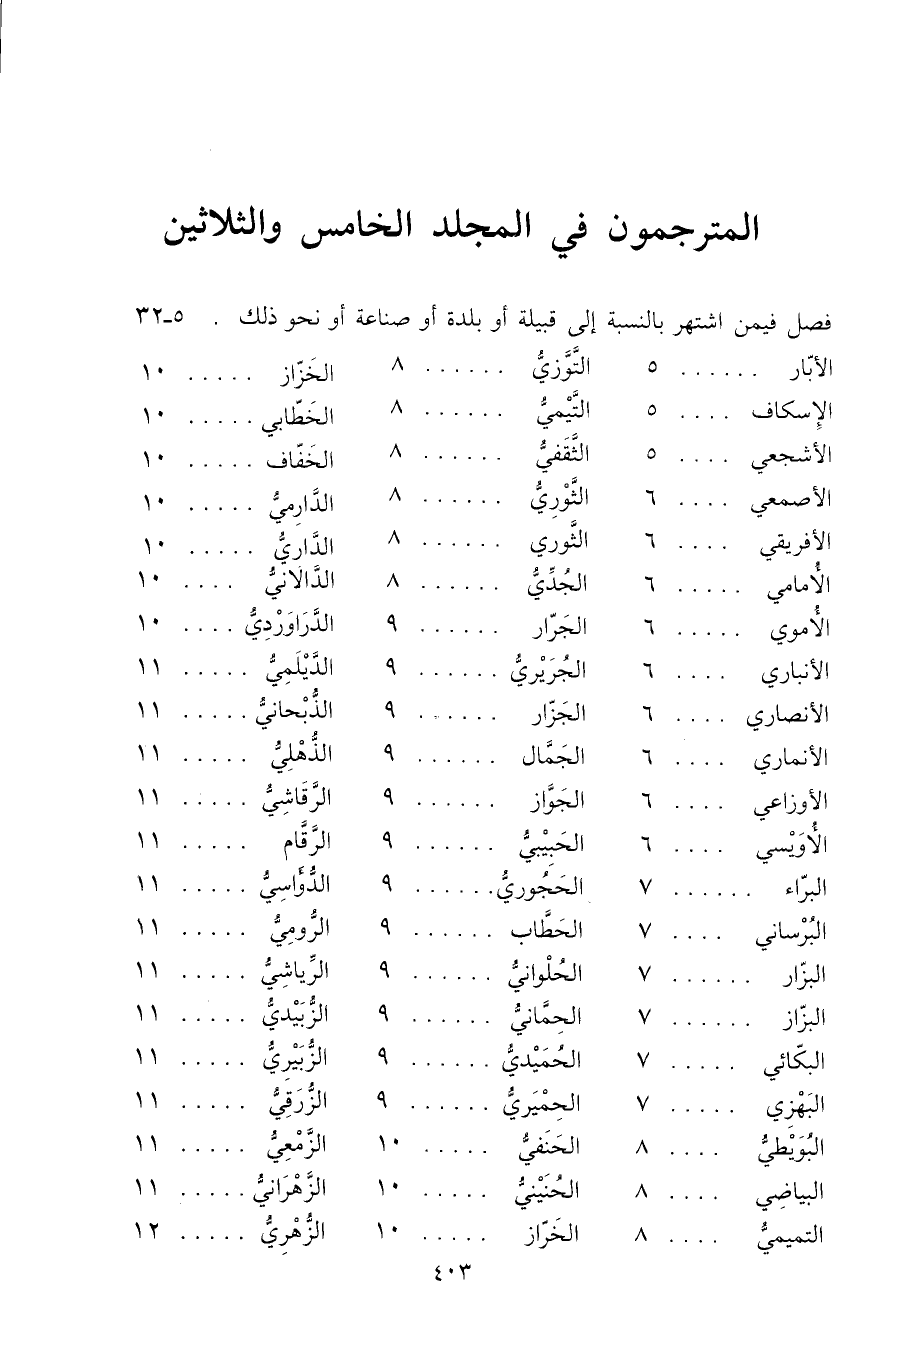 المترجمون في المجلد الخامس والثلاثين
فصل فيمن اشتهر بالنسبة إلى قبيلة أو بلدة أو صناعة أو نحو ذلك . ٥-٣٢
الأبّار ...... ٥
الإسكاف .... ٥
الأشجعي .... ٥
الأصمعي .... ٦
الأفريقي .... ٦
الأُمامي ..... ٦
الأُموي ..... ٦
الأنباري .... ٦
الأنصاري .... ٦
الأنماري .... ٦
الأوزاعي .... ٦
الأُوَيْسي .... ٦
البرّاء ...... ٧
البُرْساني .... ٧
البزّار ...... ٧
البزّاز ...... ٧
البكّائي ..... ٧
البَهْزي ..... ٧
البُوَيْطيُّ .... ٨
البياضِي .... ٨
التميميُّ .... ٨
التَّوَّزيُّ ...... ٨
التَّيْميُّ ...... ٨
الثَّقَفيُّ ...... ٨
الثَّوْرِيُّ ...... ٨
الثَّوري ...... ٨
الجُدِّيُّ ...... ٨
الجَرّار ...... ٩
الجُرَيْريُّ ...... ٩
الجَزّار ...... ٩
الجَمَّال ...... ٩
الجَوَّاز ...... ٩
الحَبِيْبيُّ ...... ٩
الحَجُوريُّ ...... ٩
الحَطَّاب ...... ٩
الحُلْوانيُّ ...... ٩
الحِمَّانيُّ ...... ٩
الحُمَيْديُّ ...... ٩
الحِمْيَريُّ ...... ٩
الحَنَفيُّ ..... ١٠
الحُنَيْنيُّ ..... ١٠
الخَرّاز ..... ١٠
الخَزّاز ..... ١٠
الخَطّابي ..... ١٠
الخَفّاف ..... ١٠
الدَّارِميُّ ..... ١٠
الدَّاريُّ ..... ١٠
الدَّالَانيُّ .... ١٠
الدَّرَاوَرْدِيُّ .... ١٠
الدَّيْلَمِيُّ ..... ١١
الذُّبْحانيُّ ..... ١١
الذُّهْلِيُّ ..... ١١
الرَّقَاشِيُّ ..... ١١
الرَّقَّام ..... ١١
الرُّؤَاسِيُّ ..... ١١
الرُّومِيُّ ..... ١١
الرِّياشِيُّ ..... ١١
الزُّبَيْديُّ ..... ١١
الزُّبَيْرِيُّ ..... ١١
الزُّرَقِيُّ ..... ١١
الزَّمْعِيُّ ..... ١١
الزَّهْرَانيُّ ..... ١١
الزُّهْرِيُّ ..... ١٢
٤٠٣